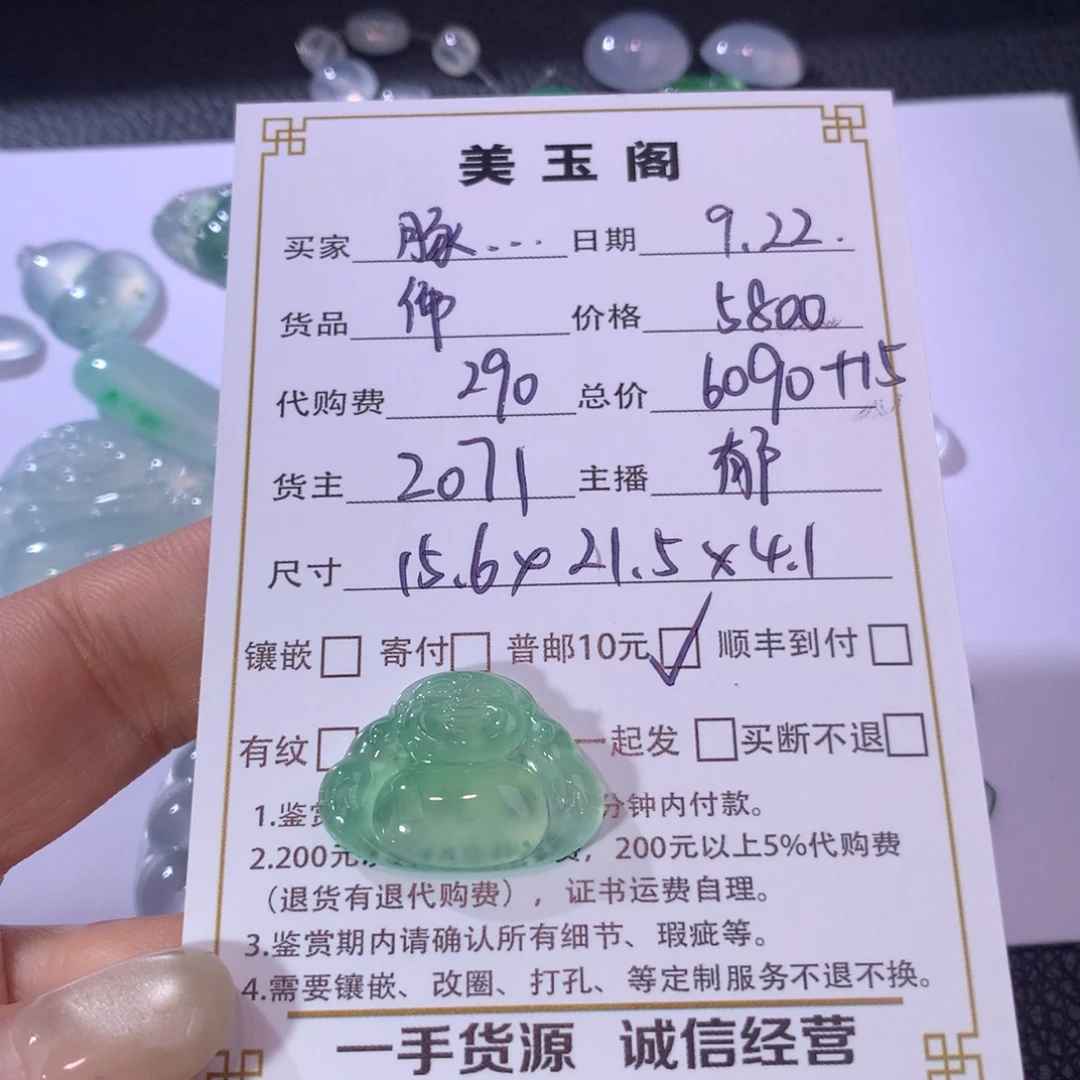 美玉阁
买家 豚... 日期 9.22.
货品 佛 价格 5800
代购费 290 总价 6090+15
货主 2071 主播 郁
尺寸 15.6×21.5×4.1
镶嵌□ 寄付□ 普邮10元☑ 顺丰到付□
有纹□ 一起发 □买断不退□
1.鉴赏 分钟内付款。
2.200元 费，200元以上5%代购费
（退货有退代购费），证书运费自理。
3.鉴赏期内请确认所有细节、瑕疵等。
4.需要镶嵌、改圈、打孔、等定制服务不退不换。
一手货源 诚信经营